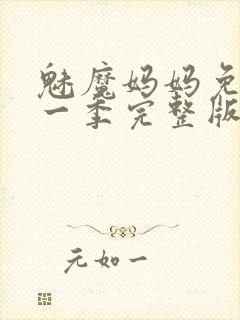 魅魔妈妈免
一季完整版
元如一